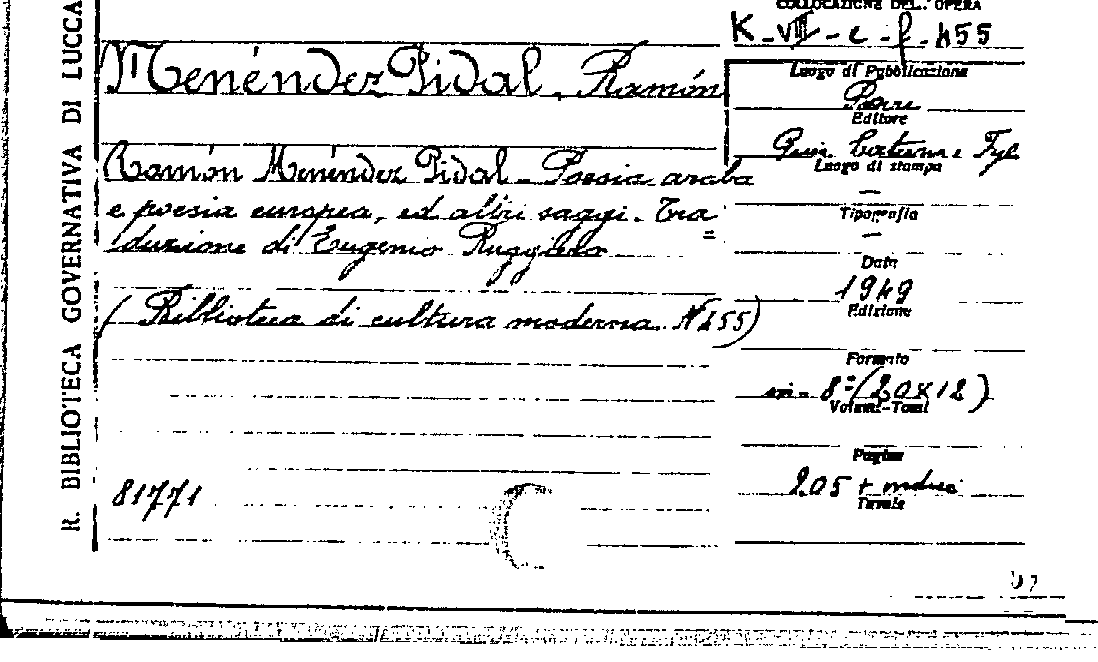 R. BIBLIOTECA GOVERNATIVA DI LUCCA
COLLOCAZIONE DELL'OPERA
K-VIII-c-f-455
Menéndez Pidal, Ramón
Ramón Menéndez Pidal - Poesia araba
e poesia europea, ed altri saggi. Tra=
duzione di Eugenio Ruggiero
(Biblioteca di cultura moderna. N 455)
81771
Luogo di Pubblicazione
Bari
Editore
Gius. Laterza e Figli
Luogo di stampa
—
Tipografia
—
Data
1949
Edizione
Formato
in-8º (20x12)
Volumi-Tomi
Pagine
205 + indice
Tavole